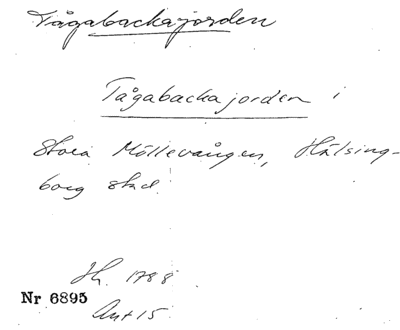 Tågabackajorden
Tågabackajorden i
Stora Möllevången, Hälsing-
borg stad.
Jh. 1788
Nr 6895
Ant 15